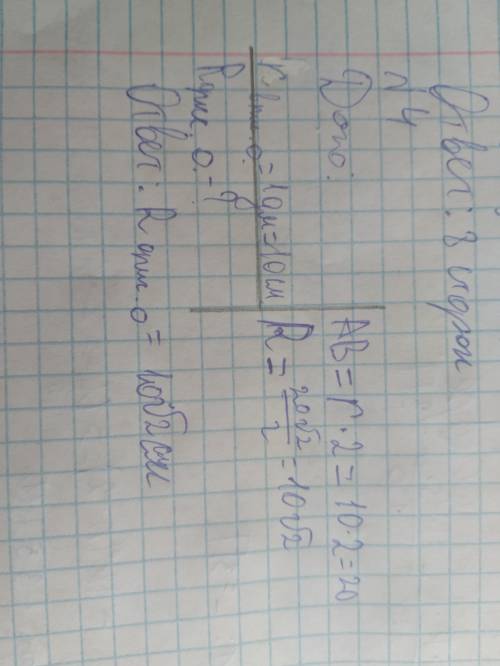 Ответ: 8 сторон
№4
Дано:
AB = r · 2 = 10 · 2 = 20
r впис. о. = 1дм = 10см
R = 20√2/2 = 10√2
R опис. о. - ?
Ответ: R опис. о = 10√2 см